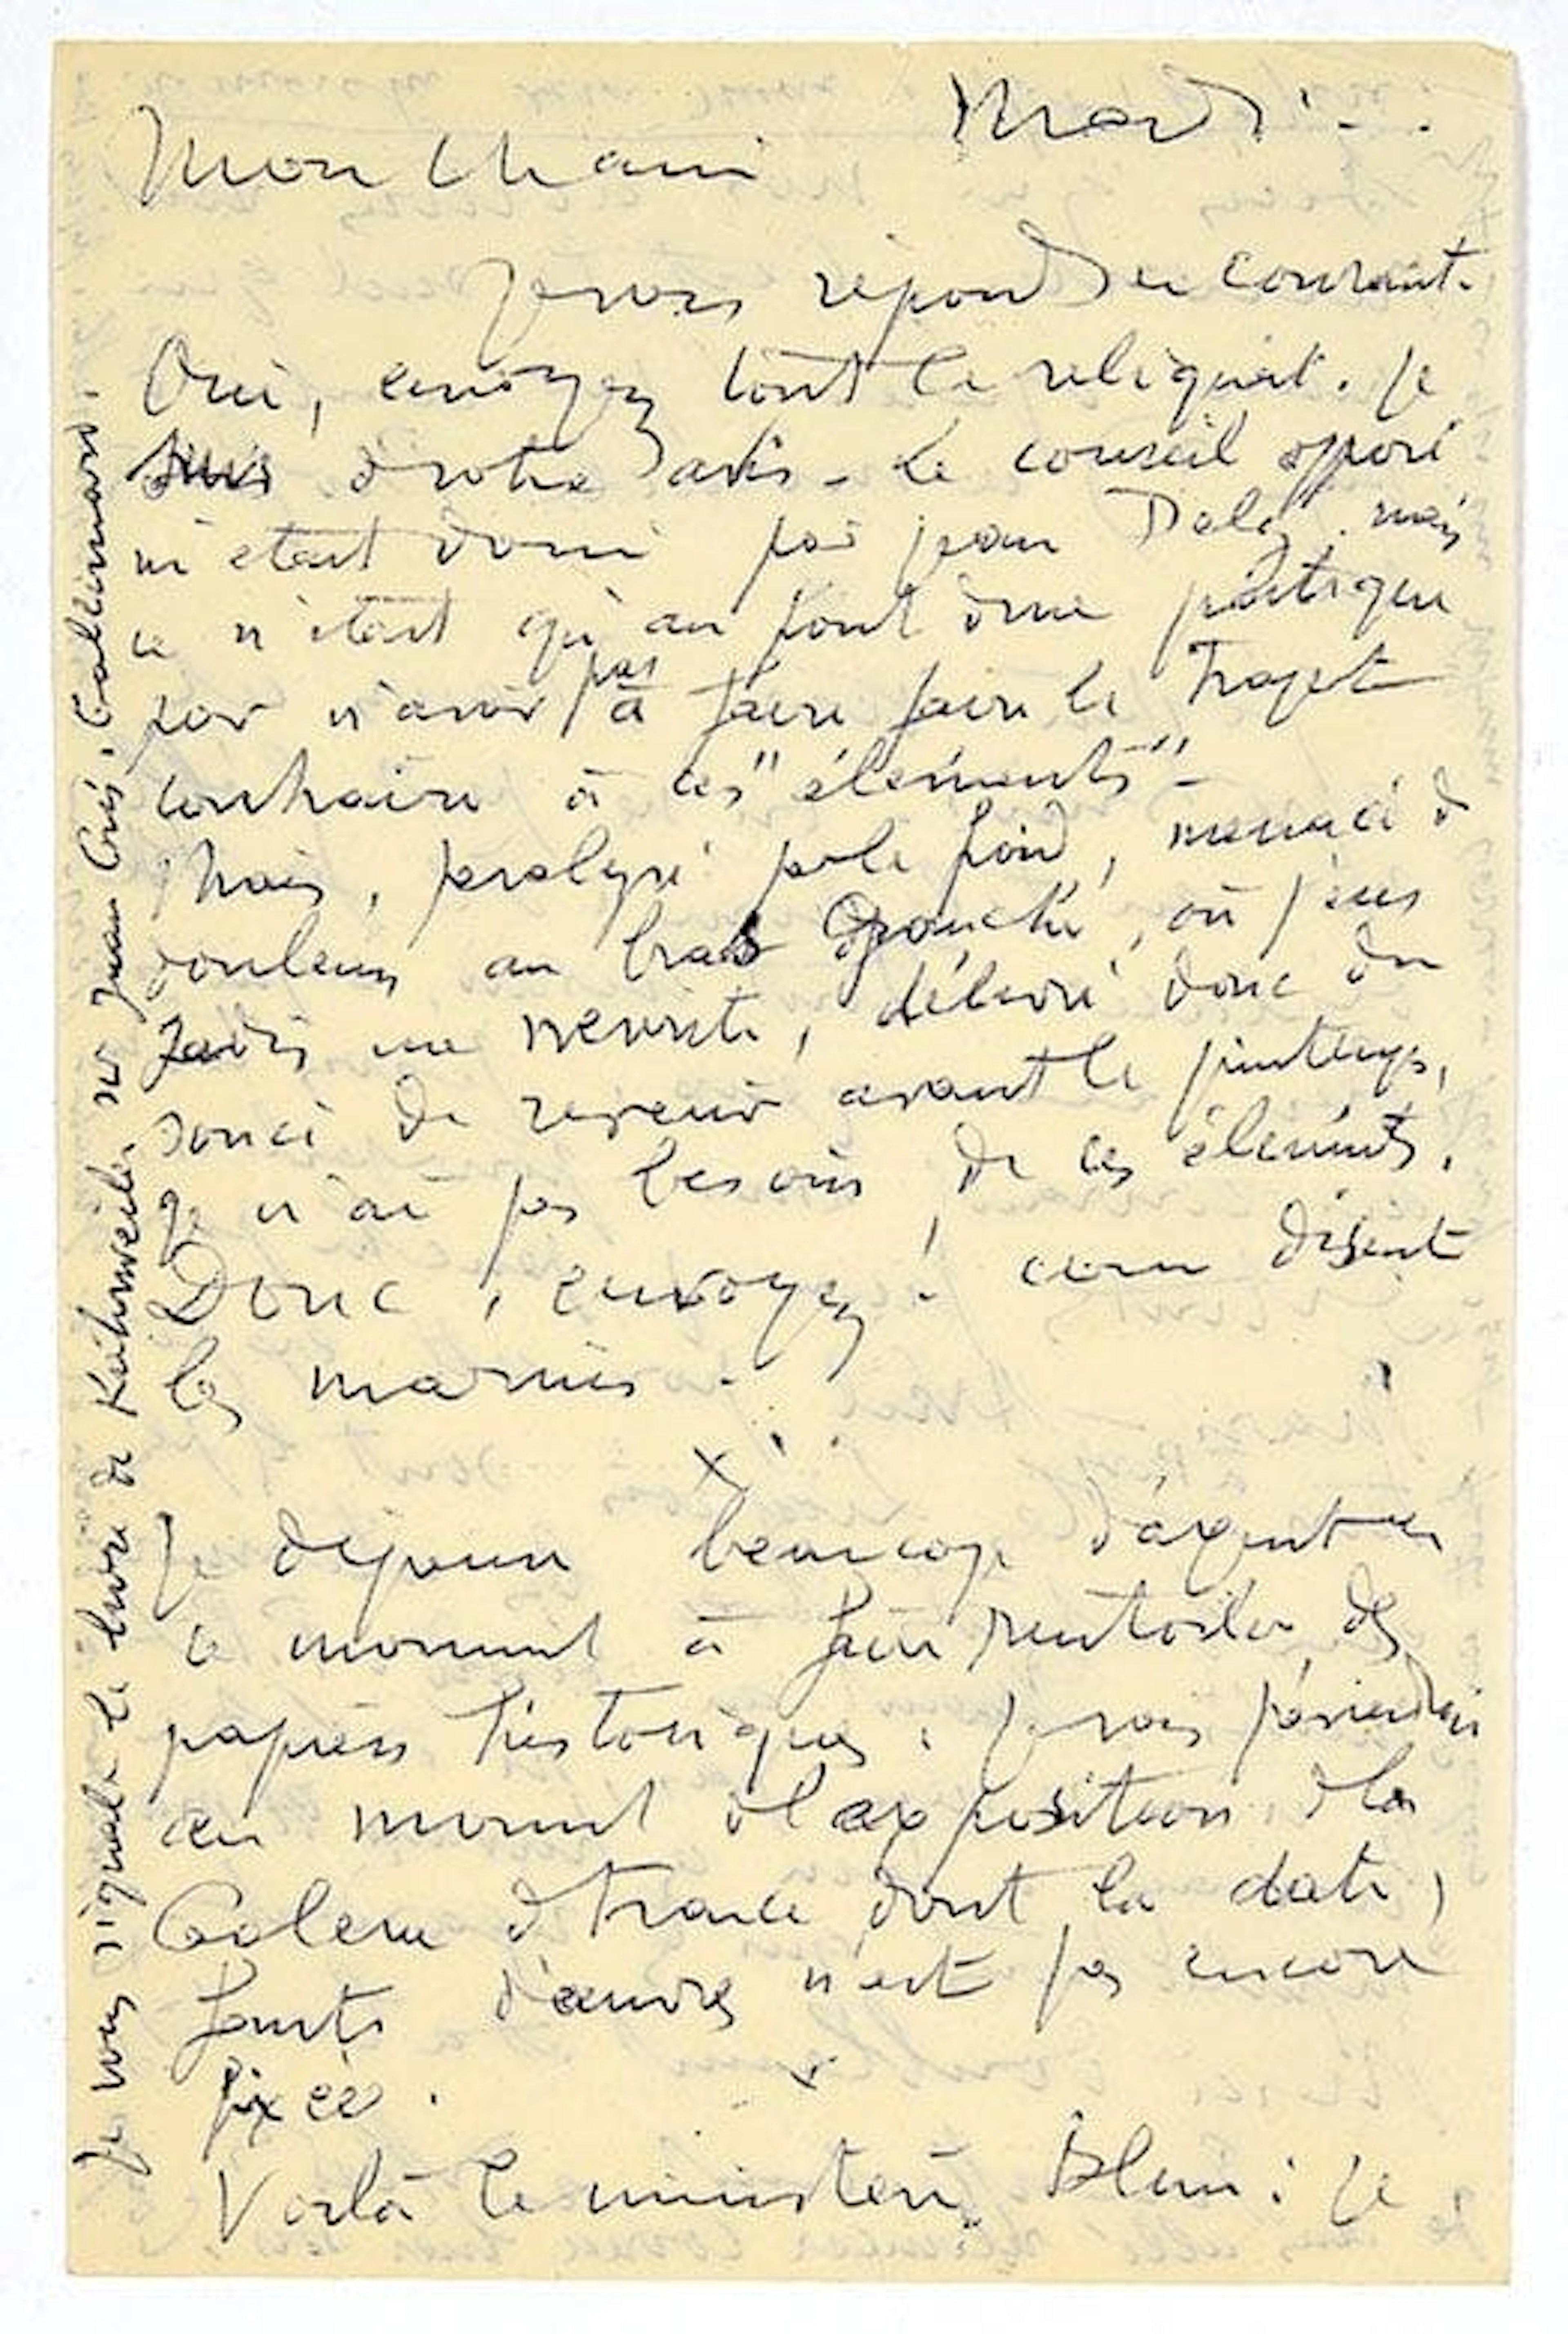 Mardi.
Mon ch ami
Je vous répond au courant.
Oui, envoyez tout le reliquat. Je
suis d votre avis - Le conseil opposé
m'était donné par jean mais
ce n'était qu'au point d vue pratique
por n'avoir pas à faire faire le Trajet
contraire à ces "éléments" -
Mais, paralysé par le froid, menacé d
douleurs au bras gauche, où j'eus
jadis une nevrite, délivré donc du
souci de revenir avant le printemps,
je n'ai pas besoin de ces éléments.
Donc, envoyez! com disent
les marins -
x
Je beaucop d'argent en
ce moment à faire rentoiler des
papiers historiques :
au moment d l'exposition d la
Galerie d France dont la date,
faute d'œuvres n'est pas encore
fixée.
x
Voilà le ministère Blum : je
Je vous signale le livre de Kahnweiler sur Juan Gris, Gallimard.